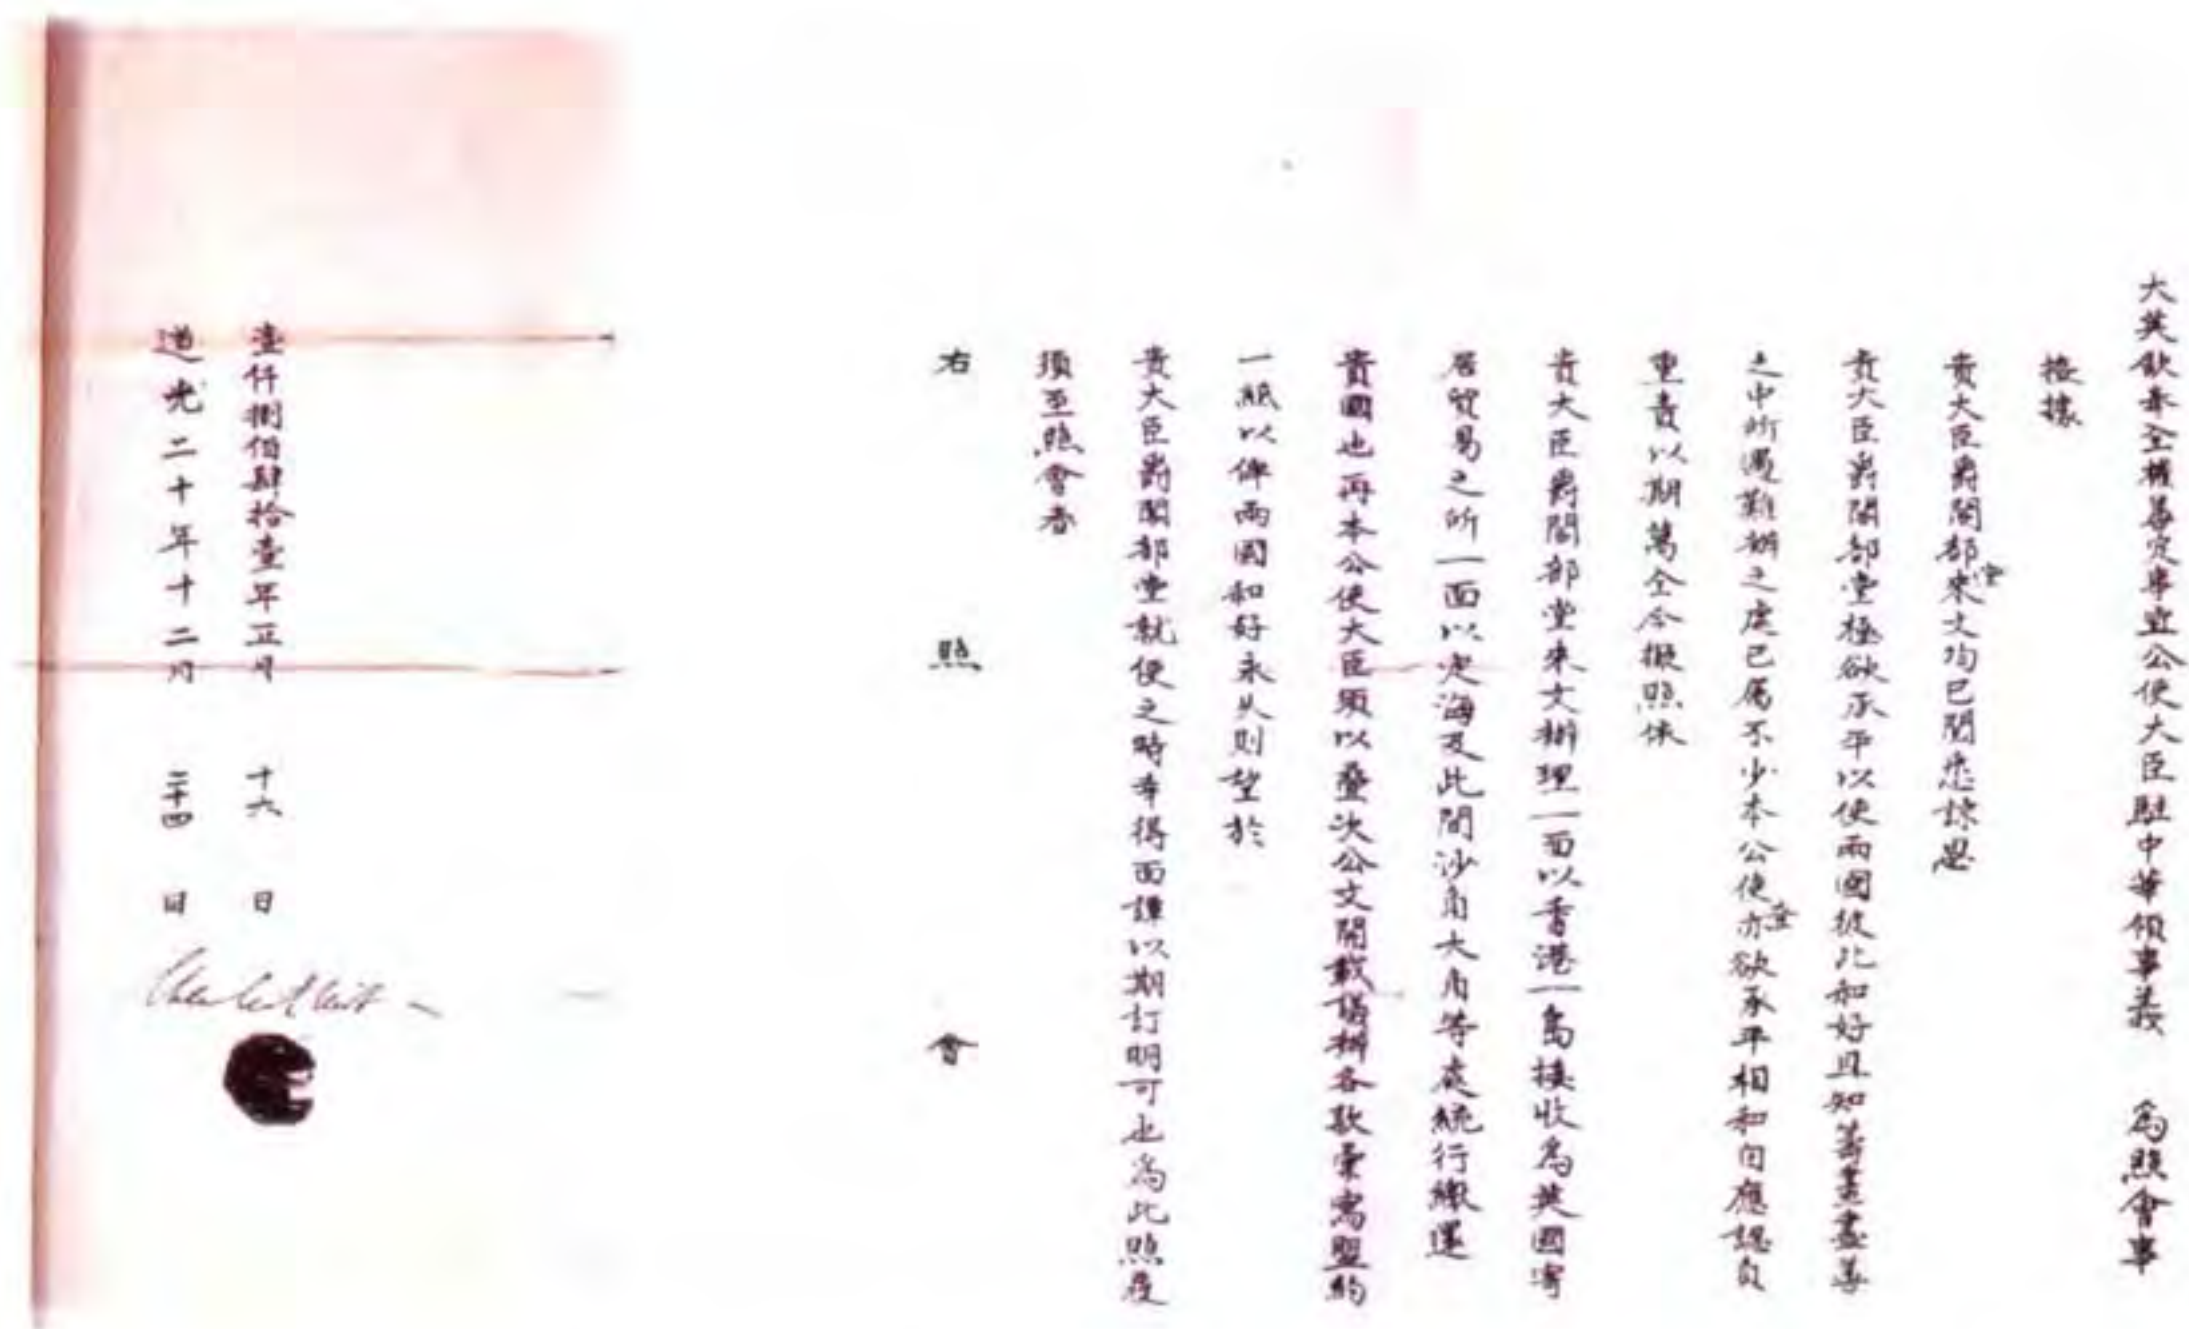 大英欽奉全權善定事宜公使大臣駐中華領事義 為照會事
接據
貴大臣爵閣部堂來文均已閱悉諒思
貴大臣爵閣部堂極欲承平以使兩國彼此和好且知籌畫盡善
之中所遇難辦之處已屬不少本公使大臣亦欲承平相和自應認負
重責以期萬全今擬照依
貴大臣爵閣部堂來文辦理一面以香港一島接收為英國寄
居貿易之所一面以定海及此間沙角大角等處統行繳還
貴國也再本公使大臣須以疊次公文開載議辦各款彙寫盟約
一紙以俾兩國和好永久則望於
貴大臣爵閣部堂就便之時幸得面譚以期訂明可也為此照復
須至照會者
右 照 會
壹仟捌佰肆拾壹年正月 十六 日
道光二十年十二月 二十四 日